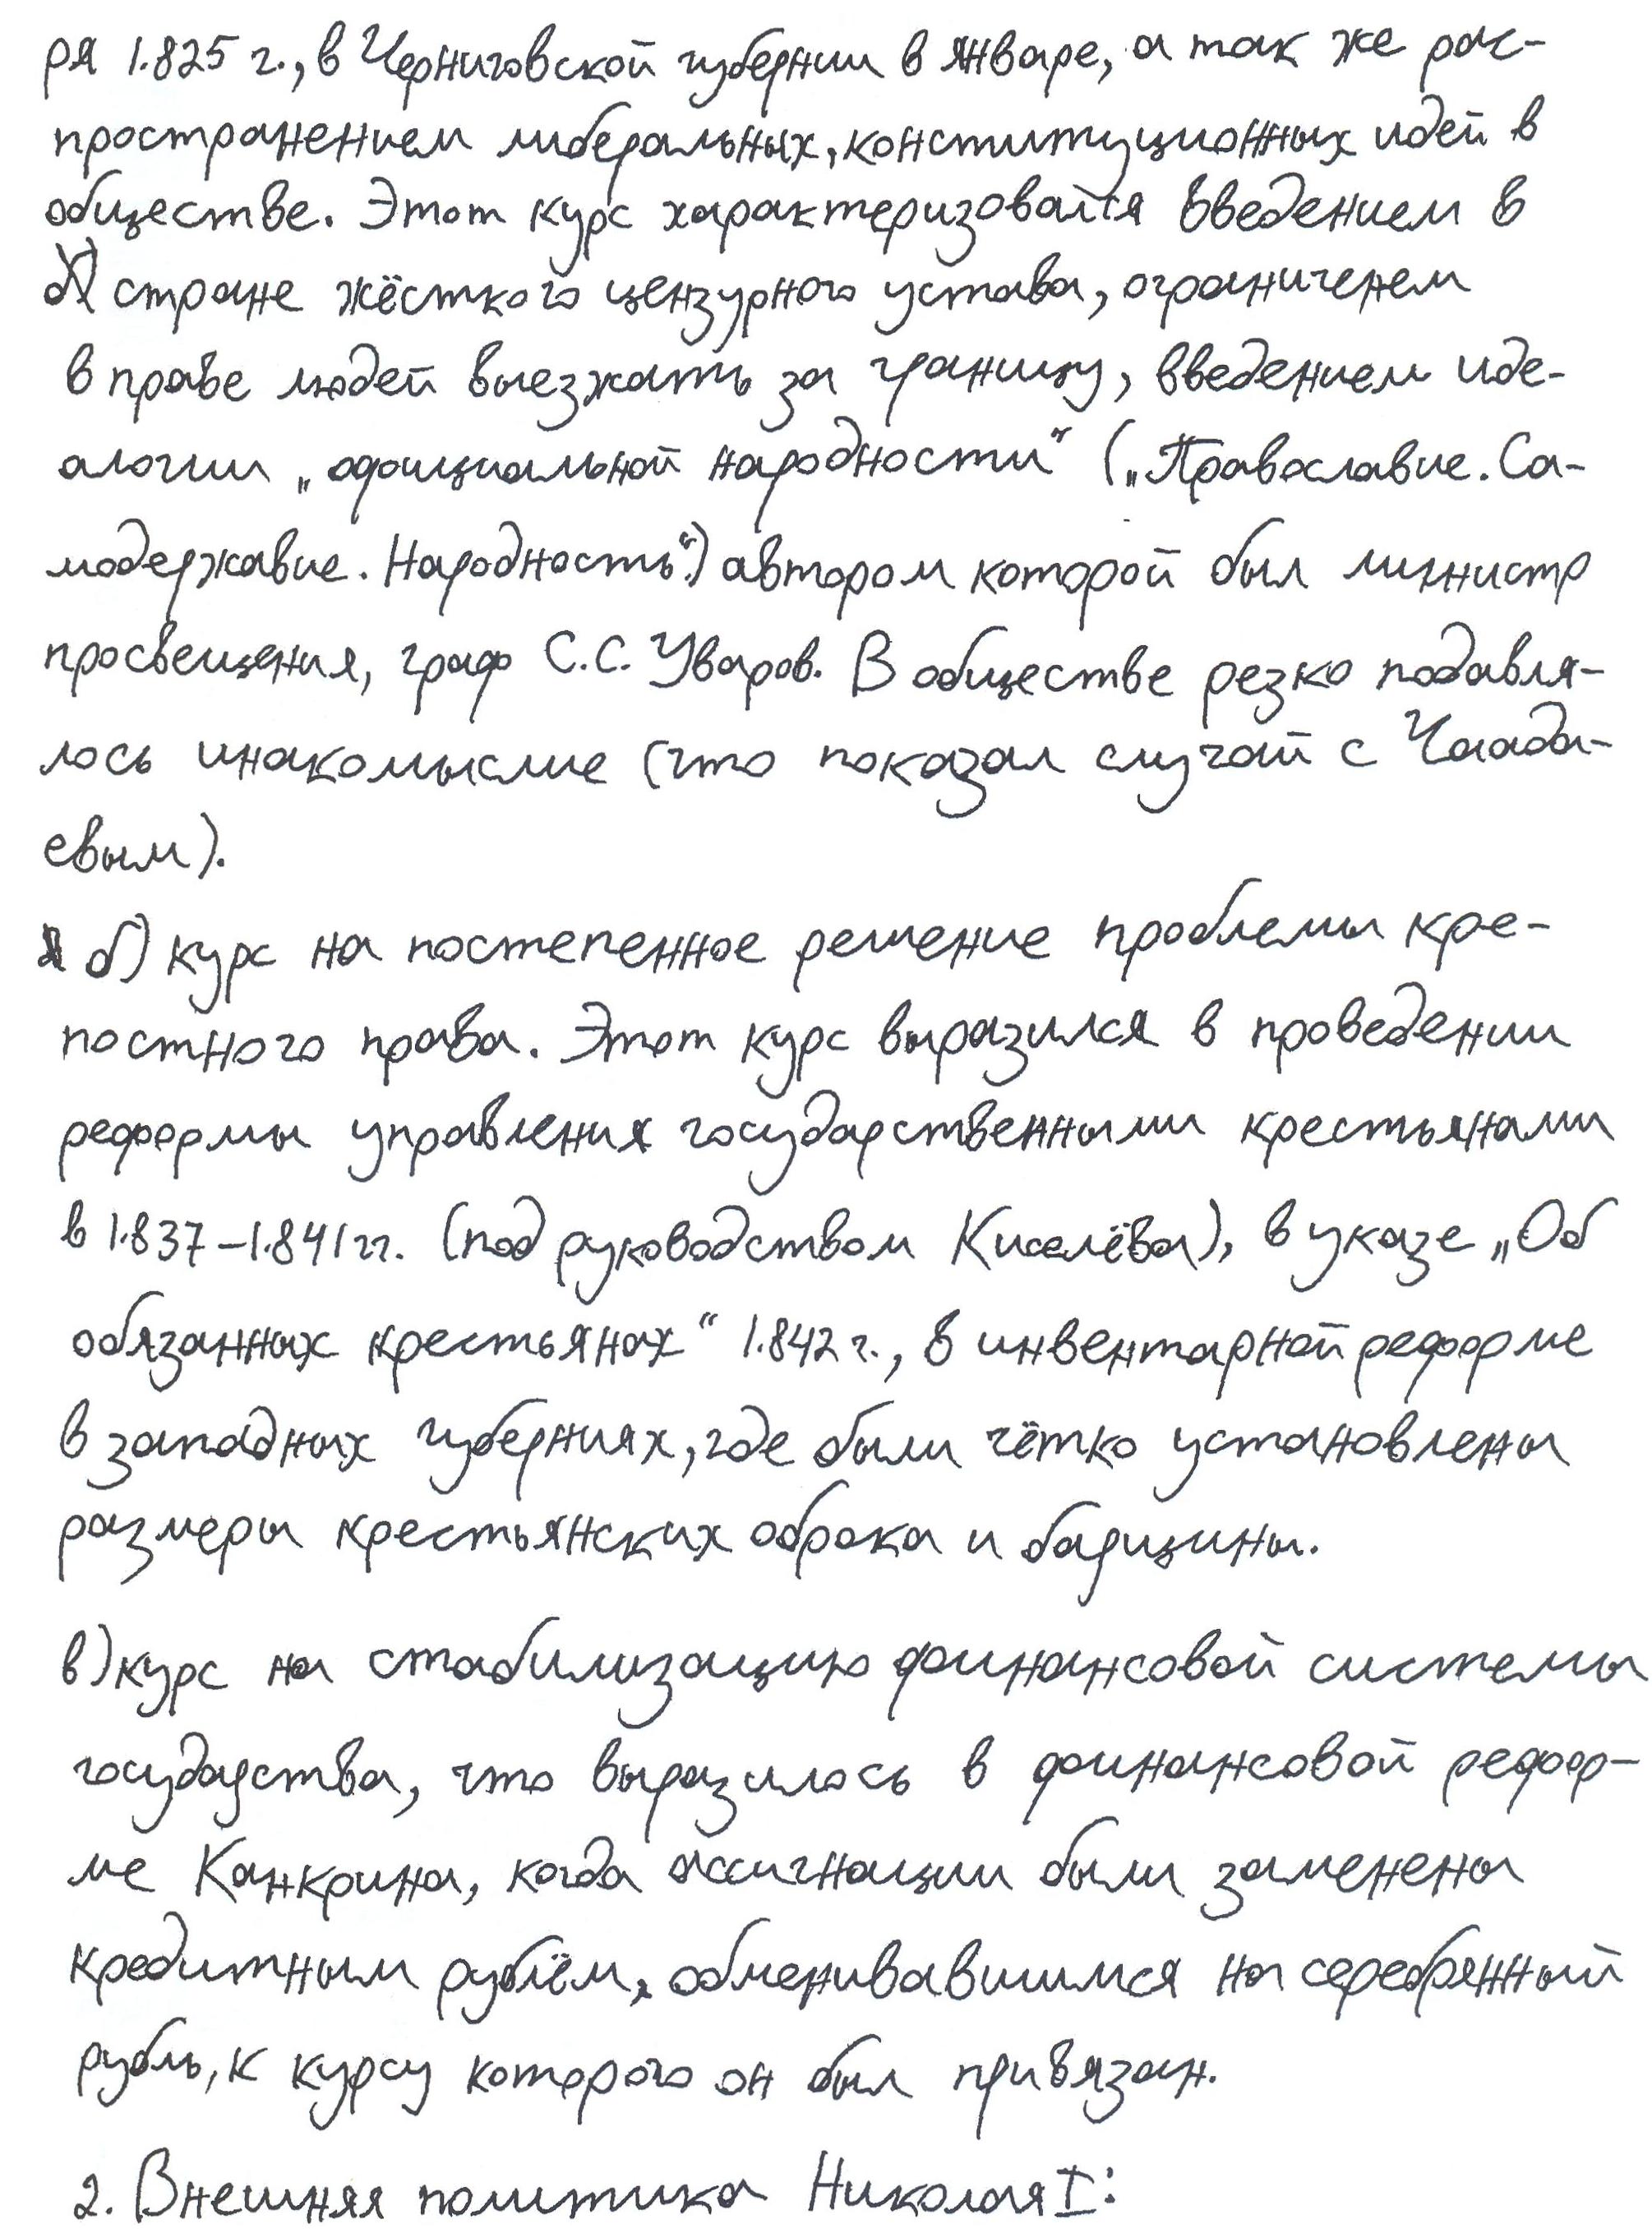 ря 1.825 г., в Черниговской губернии в январе, а так же рас-
пространением либеральных, конституционных идей в
обществе. Этот курс характеризовался введением в
стране жёсткого цензурного устава, ограниченем
в праве людей выезжать за границу, введением иде-
алогии „официальной народности“ („Православие. Са-
модержавие. Народность“.) автором которой был министр
просвещения, граф С.С. Уваров. В обществе резко подавля-
лось инакомыслие (что показал случай с Чаада-
евым).
б) курс на постепенное решение проблемы кре-
постного права. Этот курс выразился в проведении
реформы управления государственными крестьянами
в 1.837–1.841 гг. (под руководством Киселёва), в указе „Об
обязанных крестьянах“ 1.842 г., в инвентарной реформе
в западных губерниях, где были чётко установлены
размеры крестьянских оброка и барщины.
в) курс на стабилизацию финансовой системы
государства, что выразилось в финансовой рефор-
ме Канкрина, когда ассигнации были заменены
кредитным рублём, обменивавшимся на серебрянный
рубль, к курсу которого он был привязан.
2. Внешняя политика Николая I: